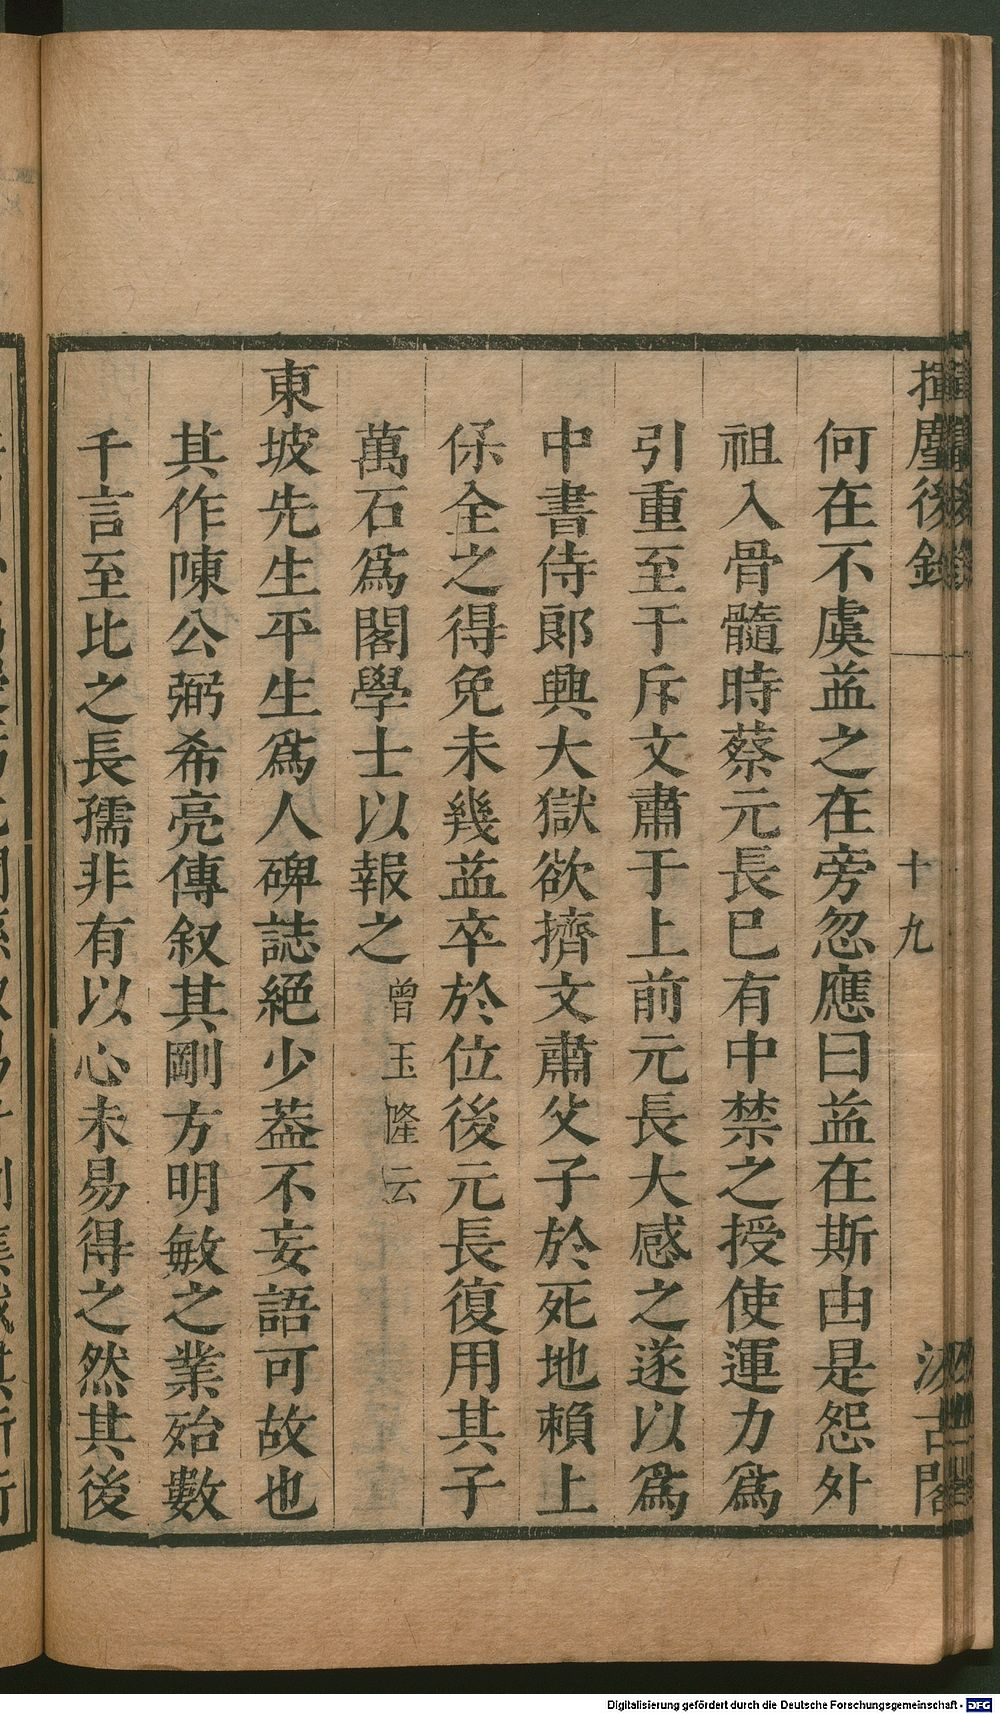 揮麈後錄
十九
汲古閣
何在不虞益之在旁忽應曰益在斯由是怨外
祖入骨髓時蔡元長巳有中禁之授使運力爲
引重至于斥文肅于上前元長大感之遂以爲
中書侍郎興大獄欲擠文肅父子於死地賴上
保全之得免未幾益卒於位後元長復用其子
萬石爲閣學士以報之曾玉隆云
東坡先生平生爲人碑誌絕少葢不妄語可故也
其作陳公弼希亮傳叙其剛方明敏之業殆數
千言至比之長孺非有以心未易得之然其後
Digitalisierung gefördert durch die Deutsche Forschungsgemeinschaft - DFG